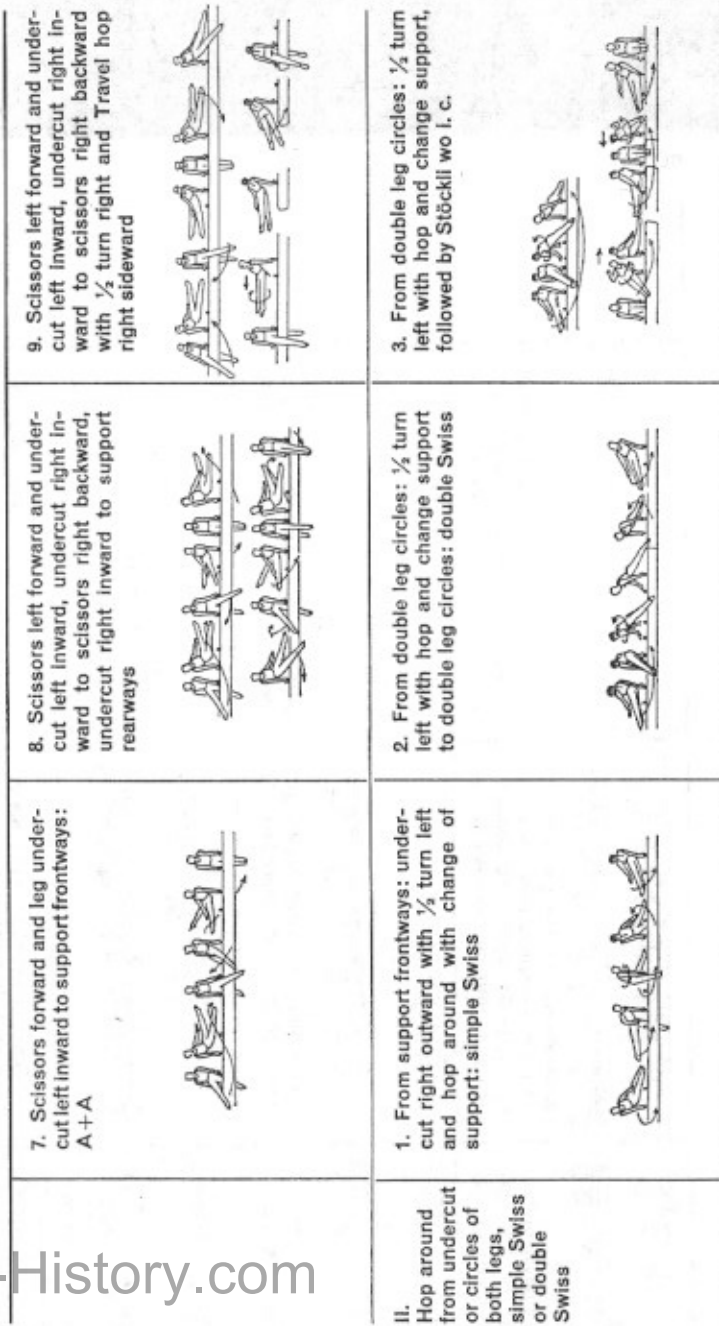 7. Scissors forward and leg under-
cut left inward to support frontways:
A+A
8. Scissors left forward and under-
cut left inward, undercut right in-
ward to scissors right backward,
undercut right inward to support
rearways
9. Scissors left forward and under-
cut left inward, undercut right in-
ward to scissors right backward
with ½ turn right and Travel hop
right sideward
II.
Hop around
from undercut
or circles of
both legs,
simple Swiss
or double
Swiss
1. From support frontways: under-
cut right outward with ½ turn left
and hop around with change of
support: simple Swiss
2. From double leg circles: ½ turn
left with hop and change support
to double leg circles: double Swiss
3. From double leg circles: ½ turn
left with hop and change support,
followed by Stöckli wo l. c.
-History.com